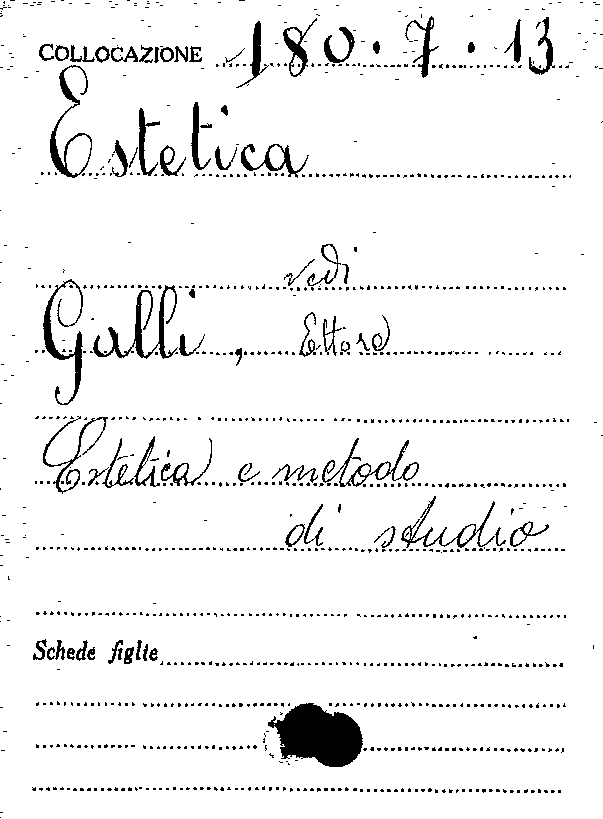 COLLOCAZIONE 180.7.13
Estetica
vedi
Galli, Ettore
Estetica e metodo
di studio
Schede figlie